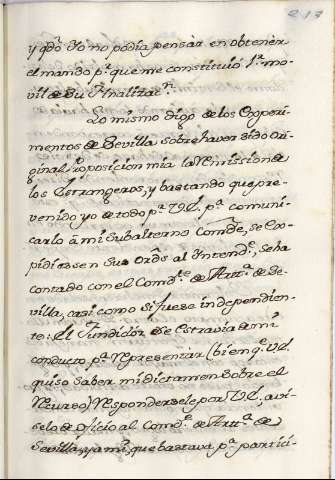 y qdo. Yo no podia pensar en obtener
el mando pr. que me constituió 1a. mo-
vil de su
Lo mismo digo de los Experi-
mentos de Sevilla sobre haver sido ori-
ginal proposición mia la remission de
los Estrangeros, y bastando que pre-
venido yo de todo pr. V.E. pa. comuni-
carlo à mi subalterno Comdte., se ex-
pidiesen sus Ords. al Yntende., se ha
contado con el Comdte. de Arta. de Se-
villa, casi como si fuese independien-
te: El Fundidòr se estravia de mi
conducto pa. representar (bien qe. V.E.
quiso saber mi dictamen sobre el
recurso) responde sele por V.E., aví-
selo de oficio al Comdte. de Arta. de
Sevilla, y a mi, que bastava pa. partici-